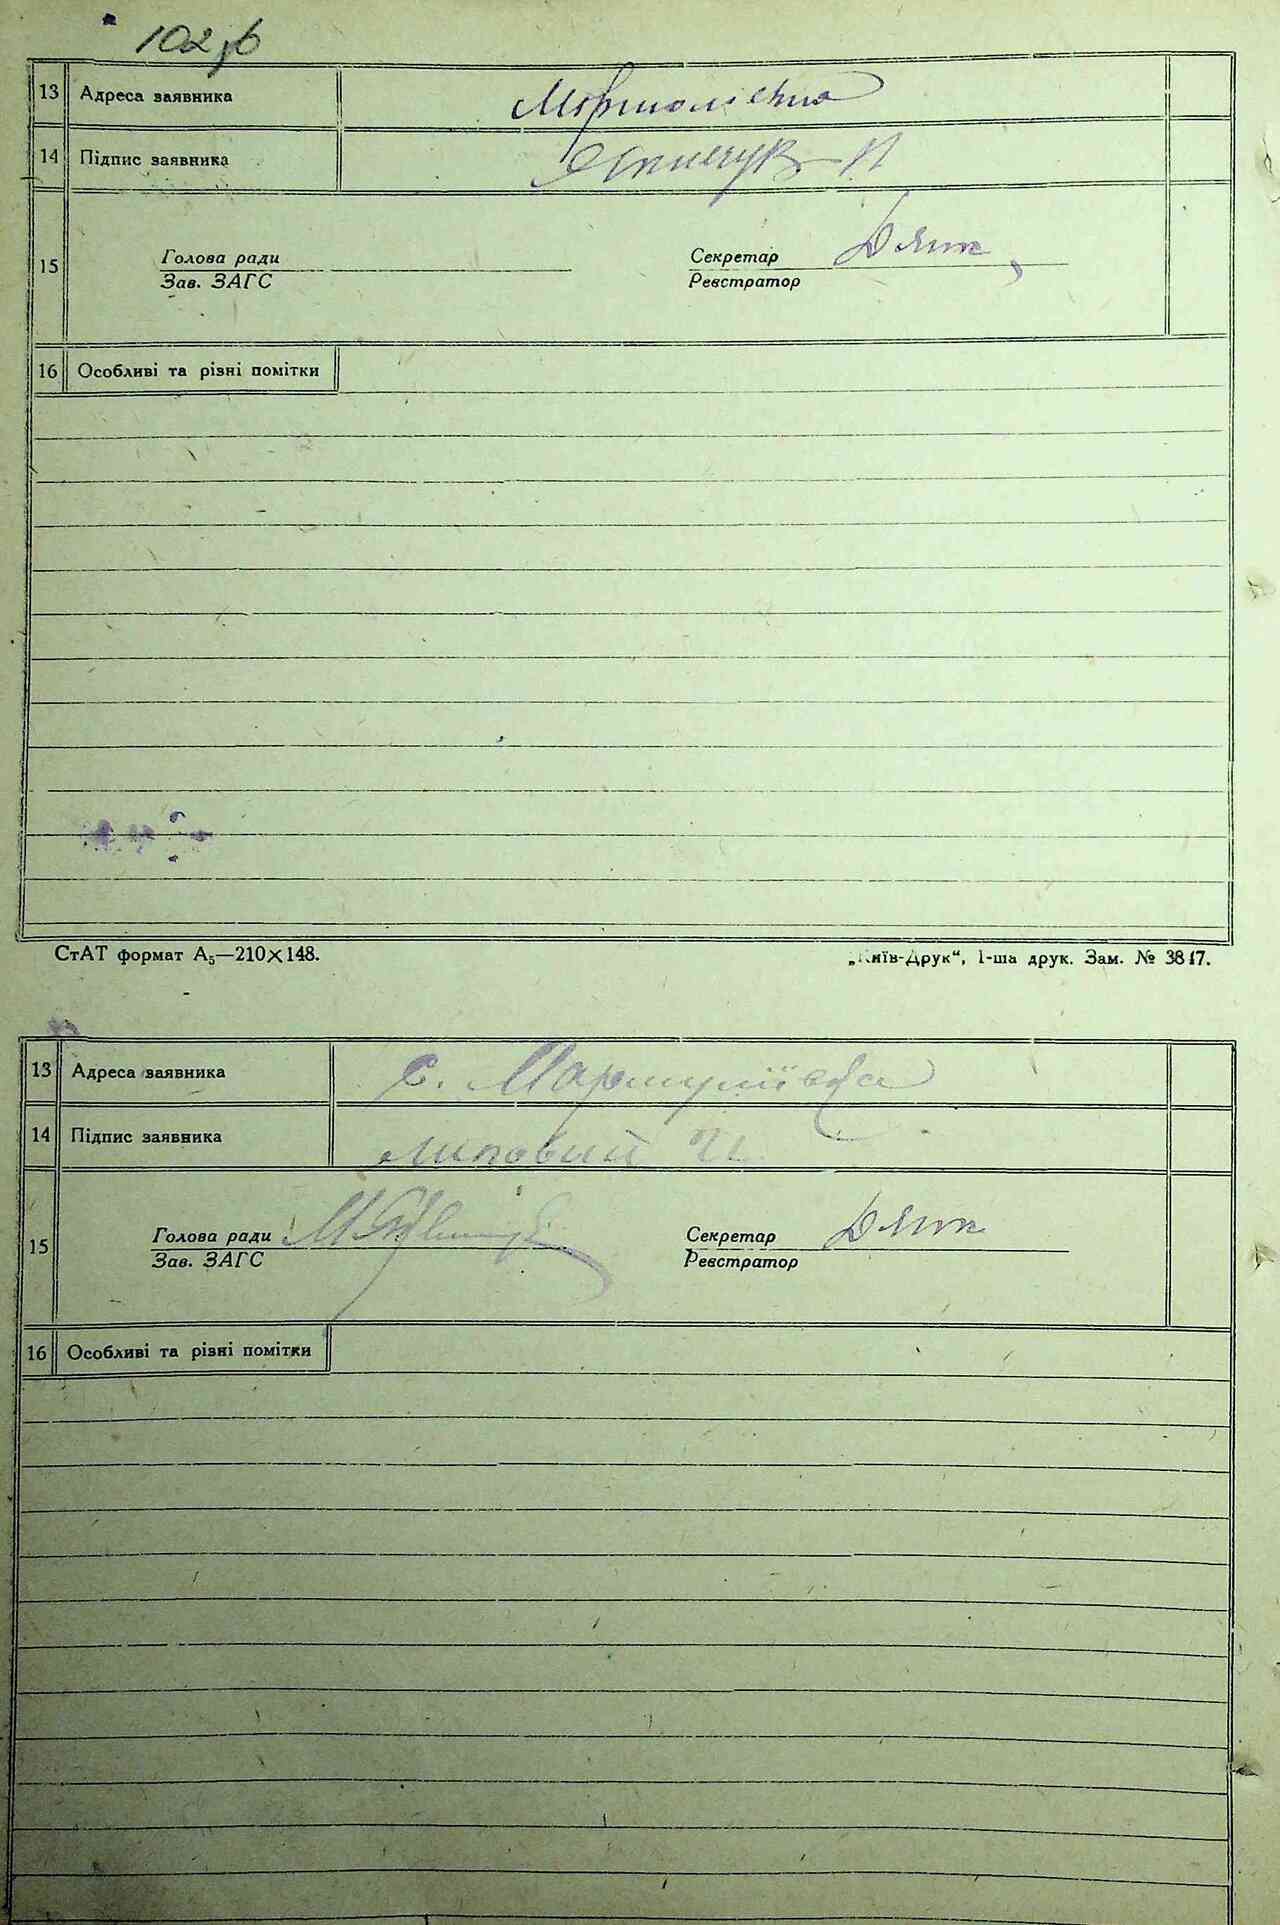 102 зв
13 Адреса заявника
14 Підпис заявника
15 Голова ради Секретар
Зав. ЗАГС Реєстратор
16 Особливі та різні помітки
СтАТ формат А5—210×148. „Київ-Друк“, 1-ша друк. Зам. № 3817.
13 Адреса заявника с.
14 Підпис заявника Липовий
15 Голова ради Секретар
Зав. ЗАГС Реєстратор
16 Особливі та різні помітки